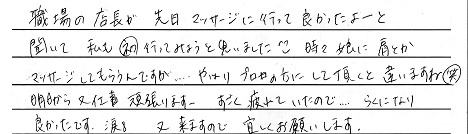 職場の店長が 先日 マッサージに行って 良かったよーと
聞いて 私も 初 行ってみようと思いました 時々 娘に 肩とか
マッサージしてもらうんですが…. やっぱり プロの方に して頂くと 違いますね 笑
明日から 又 仕事 頑張ります- すごく 疲れていたので… らくになり
良かったです. 涙 又 来ますので 宜しくお願いします.